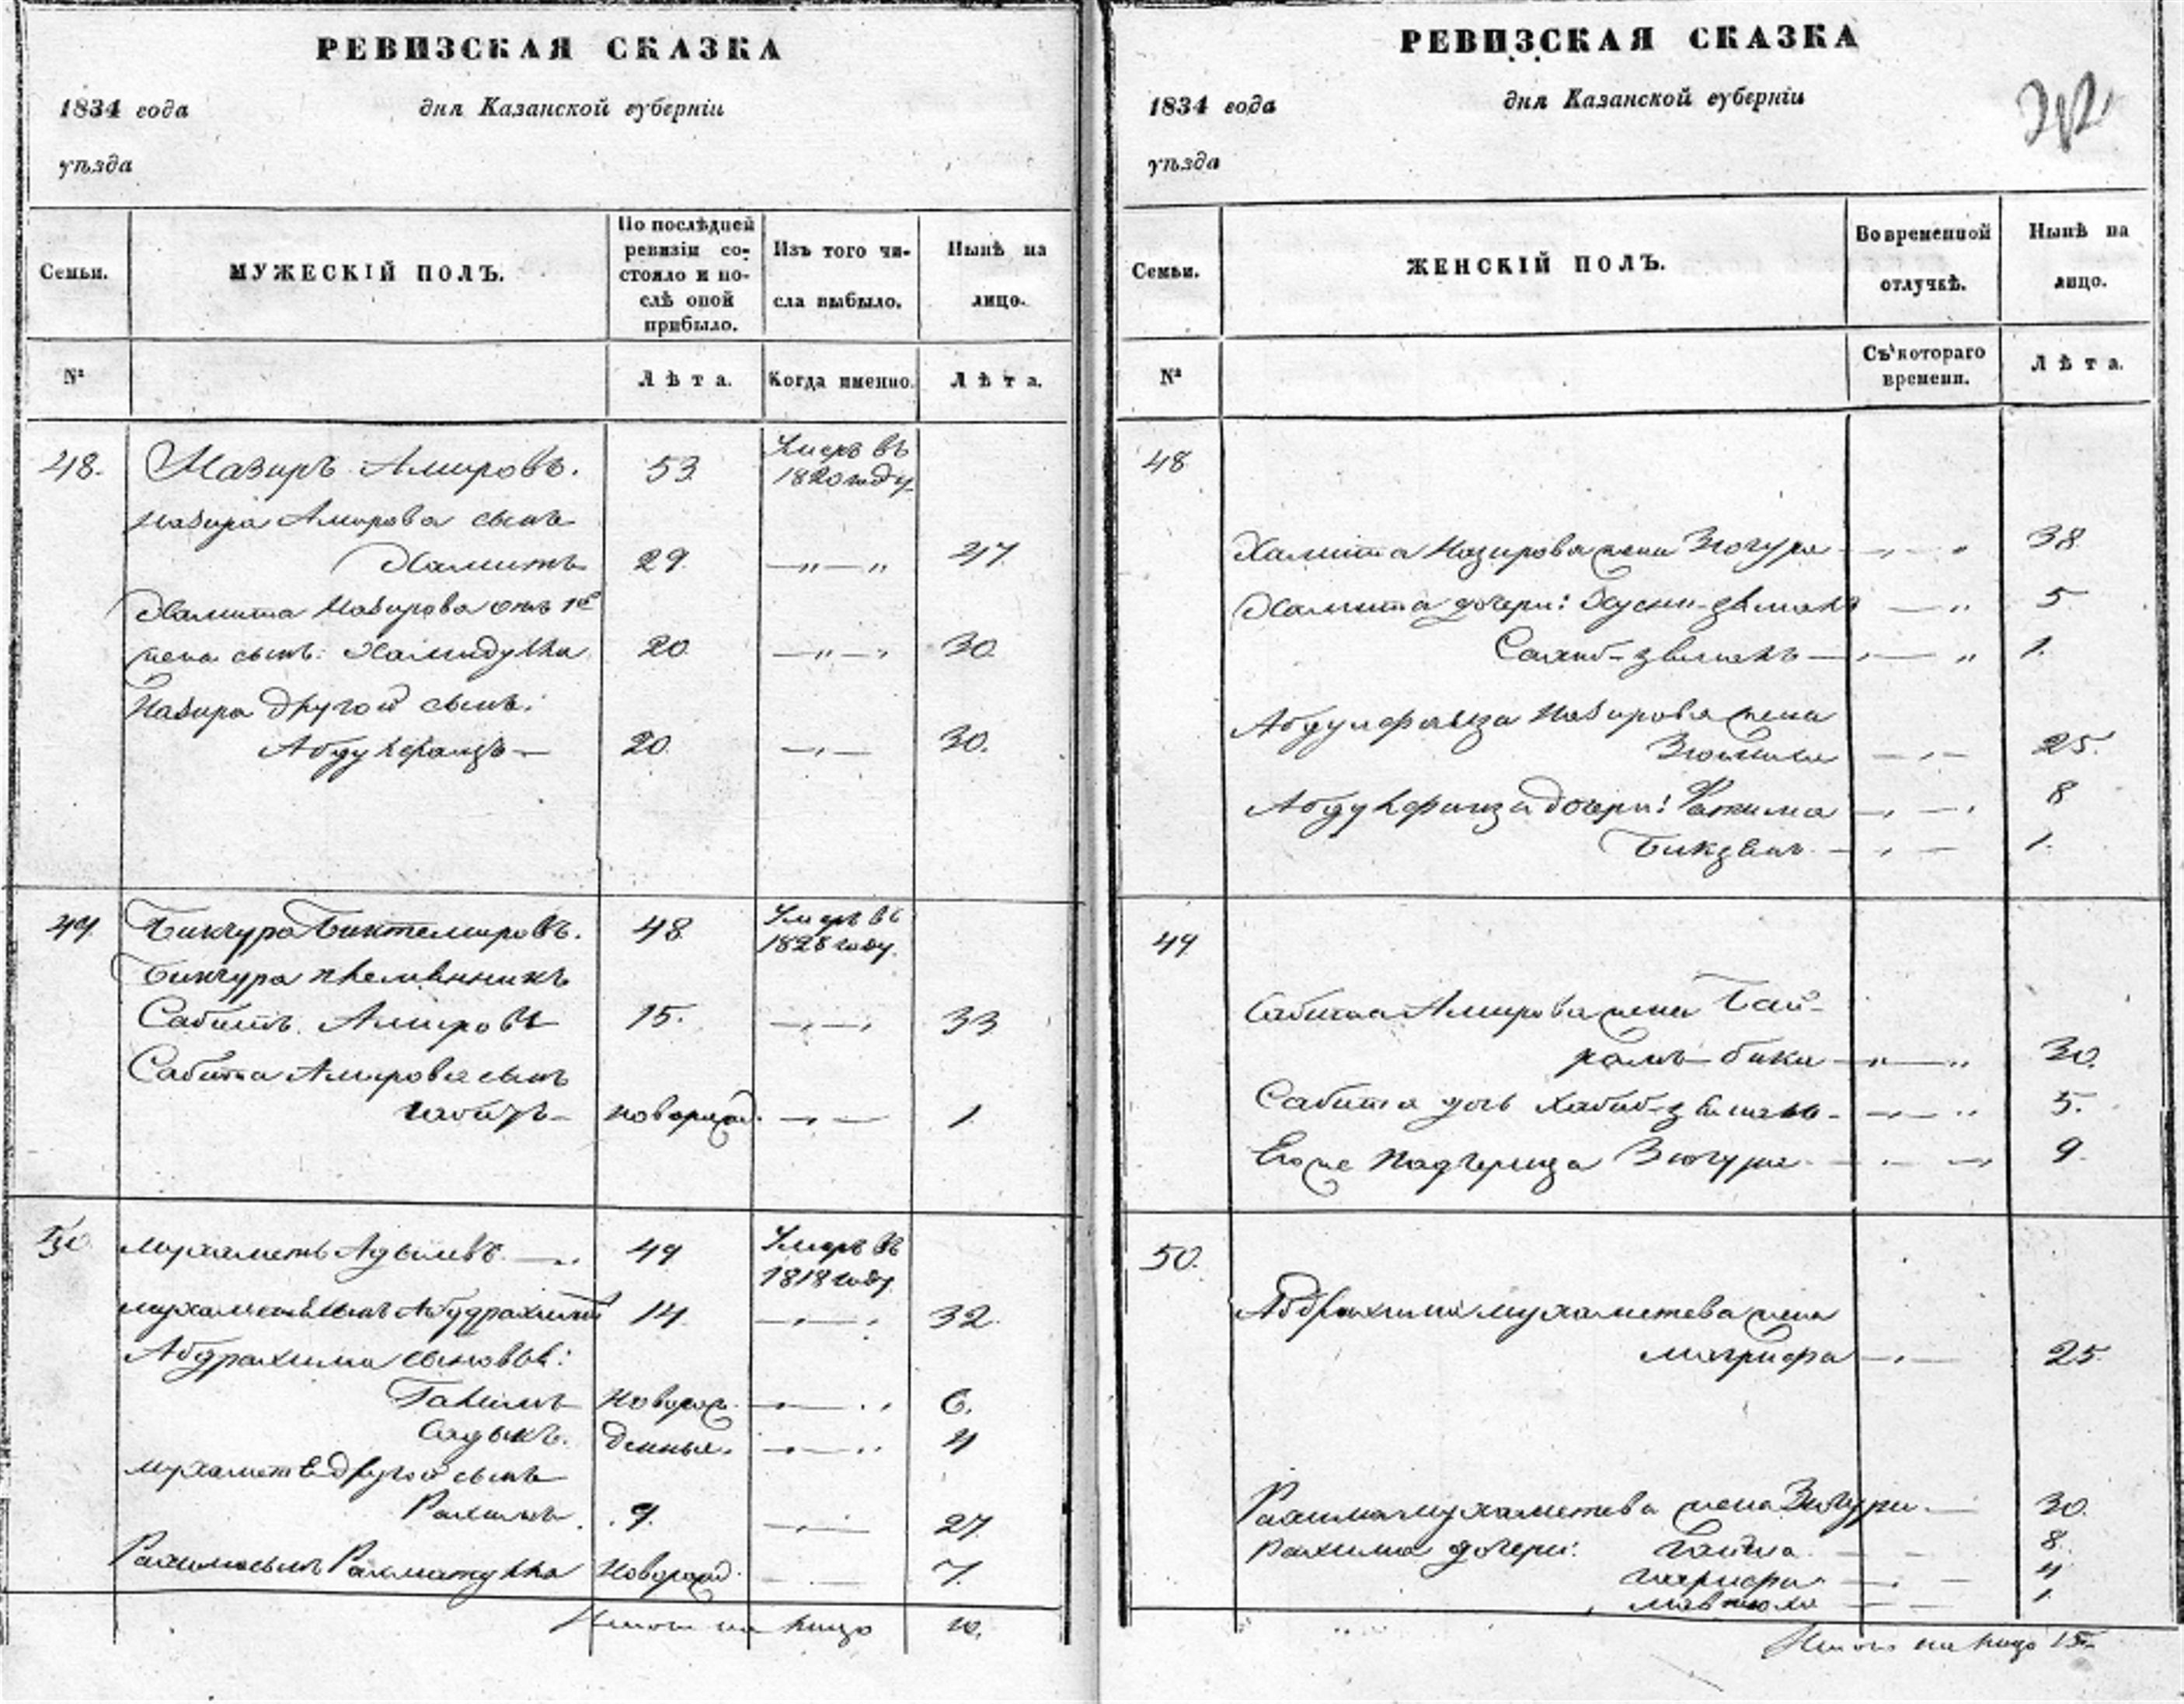 РЕВИЗСКАЯ СКАЗКА
1834 года дня Казанской губерніи
уѣзда
Семьи.
МУЖЕСКІЙ ПОЛЪ.
По послѣдней
ревизіи со-
стояло и по-
слѣ оной
прибыло.
Изъ того чи-
сла выбыло.
Нынѣ на
лицо.
№
Лѣта.
Когда именно.
Лѣта.
48. Назиръ Амировъ. 53 Умеръ въ
1820 году
Назира Амирова сынъ
Хамитъ 29 —„—„
Хамита Назирова отъ 1й
жены сынъ: Хамидулла 20 —„— 30.
Назира другой сынъ:
20 —„— 30.
49 Бикчура Биктемировъ. 48 Умеръ въ
1828 году
Бикчура племянникъ
Сабитъ Амировъ 15. —„— 33
Сабита Амирова сынъ
новорожд. —„— 1
50 Мухаметъ Адылевъ 49 Умеръ въ
1818 году
Мухаметевъ сынъ Абудрахимъ 14 —„— 32.
Абдрахима сыновья:
новорож- —„— 6.
Садыкъ. денные. —„— 4
Мухаметевъ другой сынъ
Рахимъ 9. —„— 27
Рахима сынъ Рахматулла новорожд. 7.
Итого на лицо 10.
РЕВИЗСКАЯ СКАЗКА
1834 года дня Казанской губерніи
уѣзда
Семьи.
ЖЕНСКІЙ ПОЛЪ.
Во временной
отлучкѣ.
Нынѣ на
лицо.
№
Съ котораго
времени.
Лѣта.
48
Хамита Назирова жена Зюгура —„— 38
Хамита дочери: —„ 5
—„ 1.
Назирова жена
—„— 25.
дочери: Фатима —„— 8
—„— 1.
49
Сабита Амирова жена Бай-
рамъ-бика —„— 30.
Сабита дочь —„ 5.
Его же падчерица Зюгура —„— 9
50.
Абдрахима Мухаметева жена
Магруфа —„— 25.
Рахима Мухаметева жена Зюгура — 30
Рахима дочери: 8
4
1
Итого на лицо 15